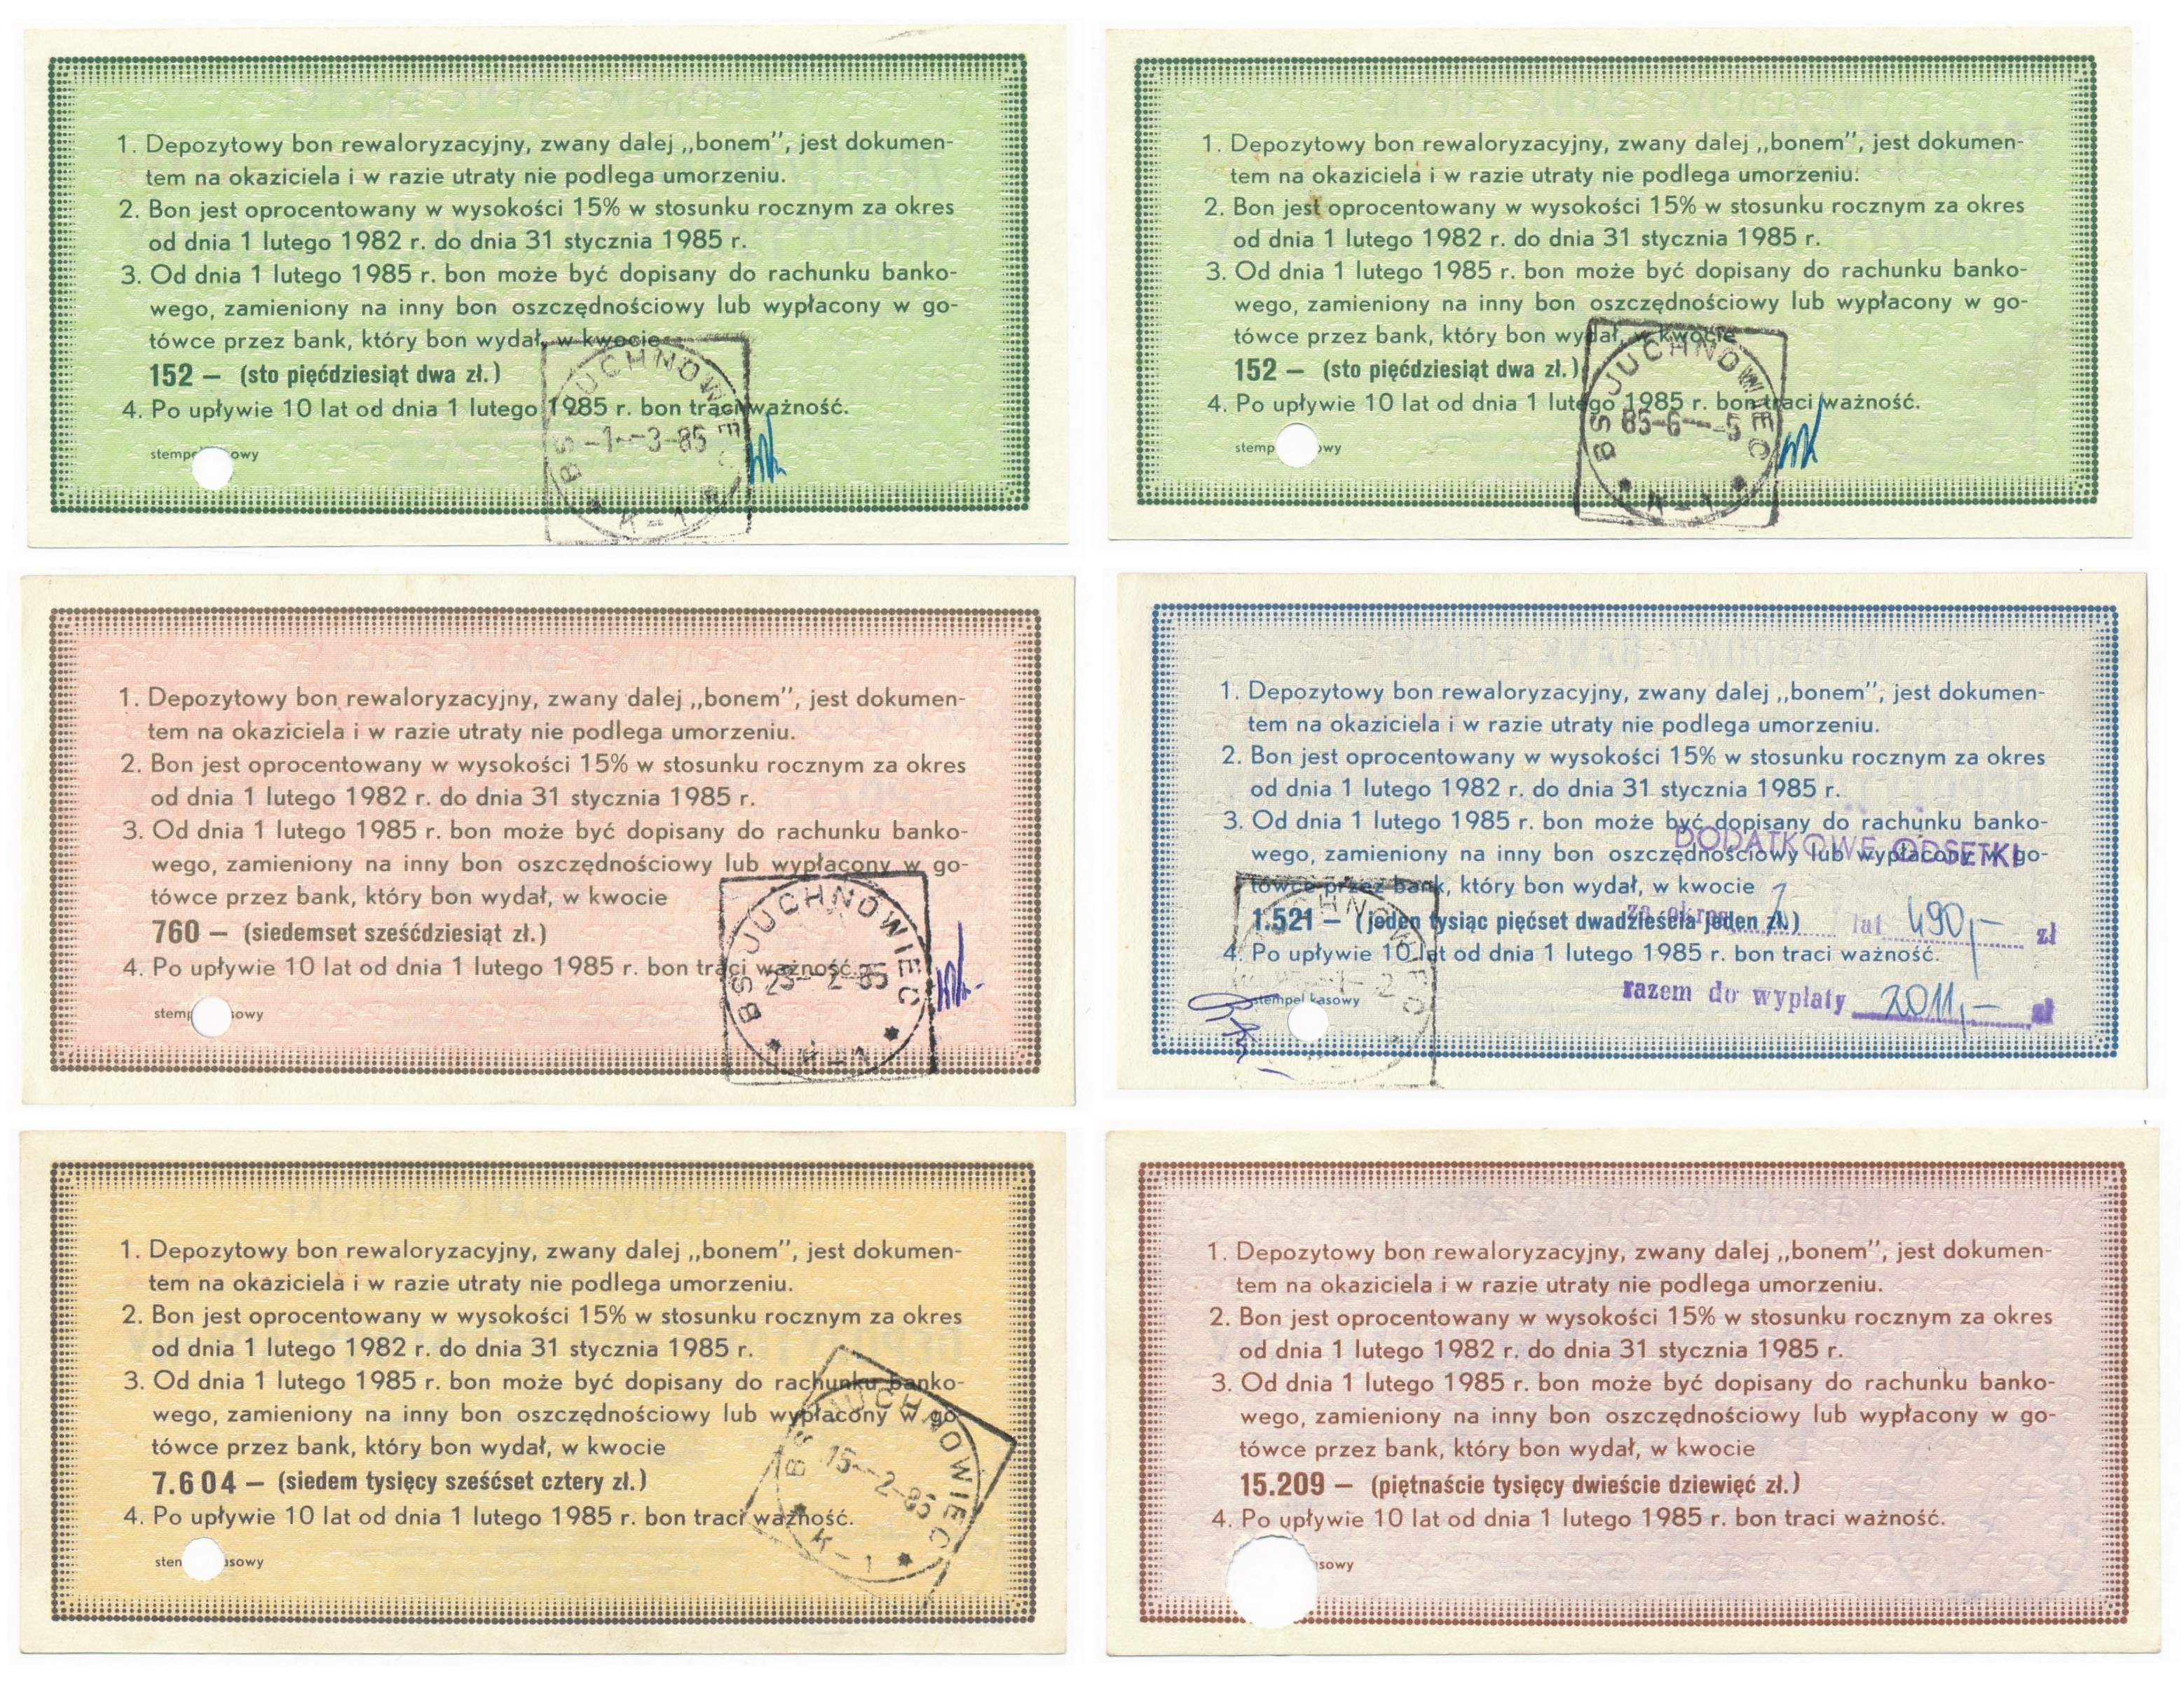 1. Depozytowy bon rewaloryzacyjny, zwany dalej „bonem”, jest dokumen-
tem na okaziciela i w razie utraty nie podlega umorzeniu.
2. Bon jest oprocentowany w wysokości 15% w stosunku rocznym za okres
od dnia 1 lutego 1982 r. do dnia 31 stycznia 1985 r.
3. Od dnia 1 lutego 1985 r. bon może być dopisany do rachunku banko-
wego, zamieniony na inny bon oszczędnościowy lub wypłacony w go-
tówce przez bank, który bon wydał, w kwocie
152 — (sto pięćdziesiąt dwa zł.)
4. Po upływie 10 lat od dnia 1 lutego 1985 r. bon traci ważność.
BS JUCHNOWIEC
-1-3-85
K-1
1. Depozytowy bon rewaloryzacyjny, zwany dalej „bonem”, jest dokumen-
tem na okaziciela i w razie utraty nie podlega umorzeniu.
2. Bon jest oprocentowany w wysokości 15% w stosunku rocznym za okres
od dnia 1 lutego 1982 r. do dnia 31 stycznia 1985 r.
3. Od dnia 1 lutego 1985 r. bon może być dopisany do rachunku banko-
wego, zamieniony na inny bon oszczędnościowy lub wypłacony w go-
tówce przez bank, który bon wydał, w kwocie
152 — (sto pięćdziesiąt dwa zł.)
4. Po upływie 10 lat od dnia 1 lutego 1985 r. bon traci ważność.
BS JUCHNOWIEC
85-6-5
K-1
1. Depozytowy bon rewaloryzacyjny, zwany dalej „bonem”, jest dokumen-
tem na okaziciela i w razie utraty nie podlega umorzeniu.
2. Bon jest oprocentowany w wysokości 15% w stosunku rocznym za okres
od dnia 1 lutego 1982 r. do dnia 31 stycznia 1985 r.
3. Od dnia 1 lutego 1985 r. bon może być dopisany do rachunku banko-
wego, zamieniony na inny bon oszczędnościowy lub wypłacony w go-
tówce przez bank, który bon wydał, w kwocie
760 — (siedemset sześćdziesiąt zł.)
4. Po upływie 10 lat od dnia 1 lutego 1985 r. bon traci ważność.
BS JUCHNOWIEC
K-1
1. Depozytowy bon rewaloryzacyjny, zwany dalej „bonem”, jest dokumen-
tem na okaziciela i w razie utraty nie podlega umorzeniu.
2. Bon jest oprocentowany w wysokości 15% w stosunku rocznym za okres
od dnia 1 lutego 1982 r. do dnia 31 stycznia 1985 r.
3. Od dnia 1 lutego 1985 r. bon może być dopisany do rachunku banko-
wego, zamieniony na inny bon oszczędnościowy lub wypłacony w go-
tówce przez bank, który bon wydał, w kwocie
1.521 — (jeden tysiąc pięćset dwadzieścia jeden zł.)
4. Po upływie 10 lat od dnia 1 lutego 1985 r. bon traci ważność.
stempel kasowy
DODATKOWE ODSETKI
za okres 1 lat 490,- zł
razem do wypłaty 2011,- zł
1. Depozytowy bon rewaloryzacyjny, zwany dalej „bonem”, jest dokumen-
tem na okaziciela i w razie utraty nie podlega umorzeniu.
2. Bon jest oprocentowany w wysokości 15% w stosunku rocznym za okres
od dnia 1 lutego 1982 r. do dnia 31 stycznia 1985 r.
3. Od dnia 1 lutego 1985 r. bon może być dopisany do rachunku banko-
wego, zamieniony na inny bon oszczędnościowy lub wypłacony w go-
tówce przez bank, który bon wydał, w kwocie
7.604 — (siedem tysięcy sześćset cztery zł.)
4. Po upływie 10 lat od dnia 1 lutego 1985 r. bon traci ważność.
BS JUCHNOWIEC
15-2-85
K-1
1. Depozytowy bon rewaloryzacyjny, zwany dalej „bonem”, jest dokumen-
tem na okaziciela i w razie utraty nie podlega umorzeniu.
2. Bon jest oprocentowany w wysokości 15% w stosunku rocznym za okres
od dnia 1 lutego 1982 r. do dnia 31 stycznia 1985 r.
3. Od dnia 1 lutego 1985 r. bon może być dopisany do rachunku banko-
wego, zamieniony na inny bon oszczędnościowy lub wypłacony w go-
tówce przez bank, który bon wydał, w kwocie
15.209 — (piętnaście tysięcy dwieście dziewięć zł.)
4. Po upływie 10 lat od dnia 1 lutego 1985 r. bon traci ważność.